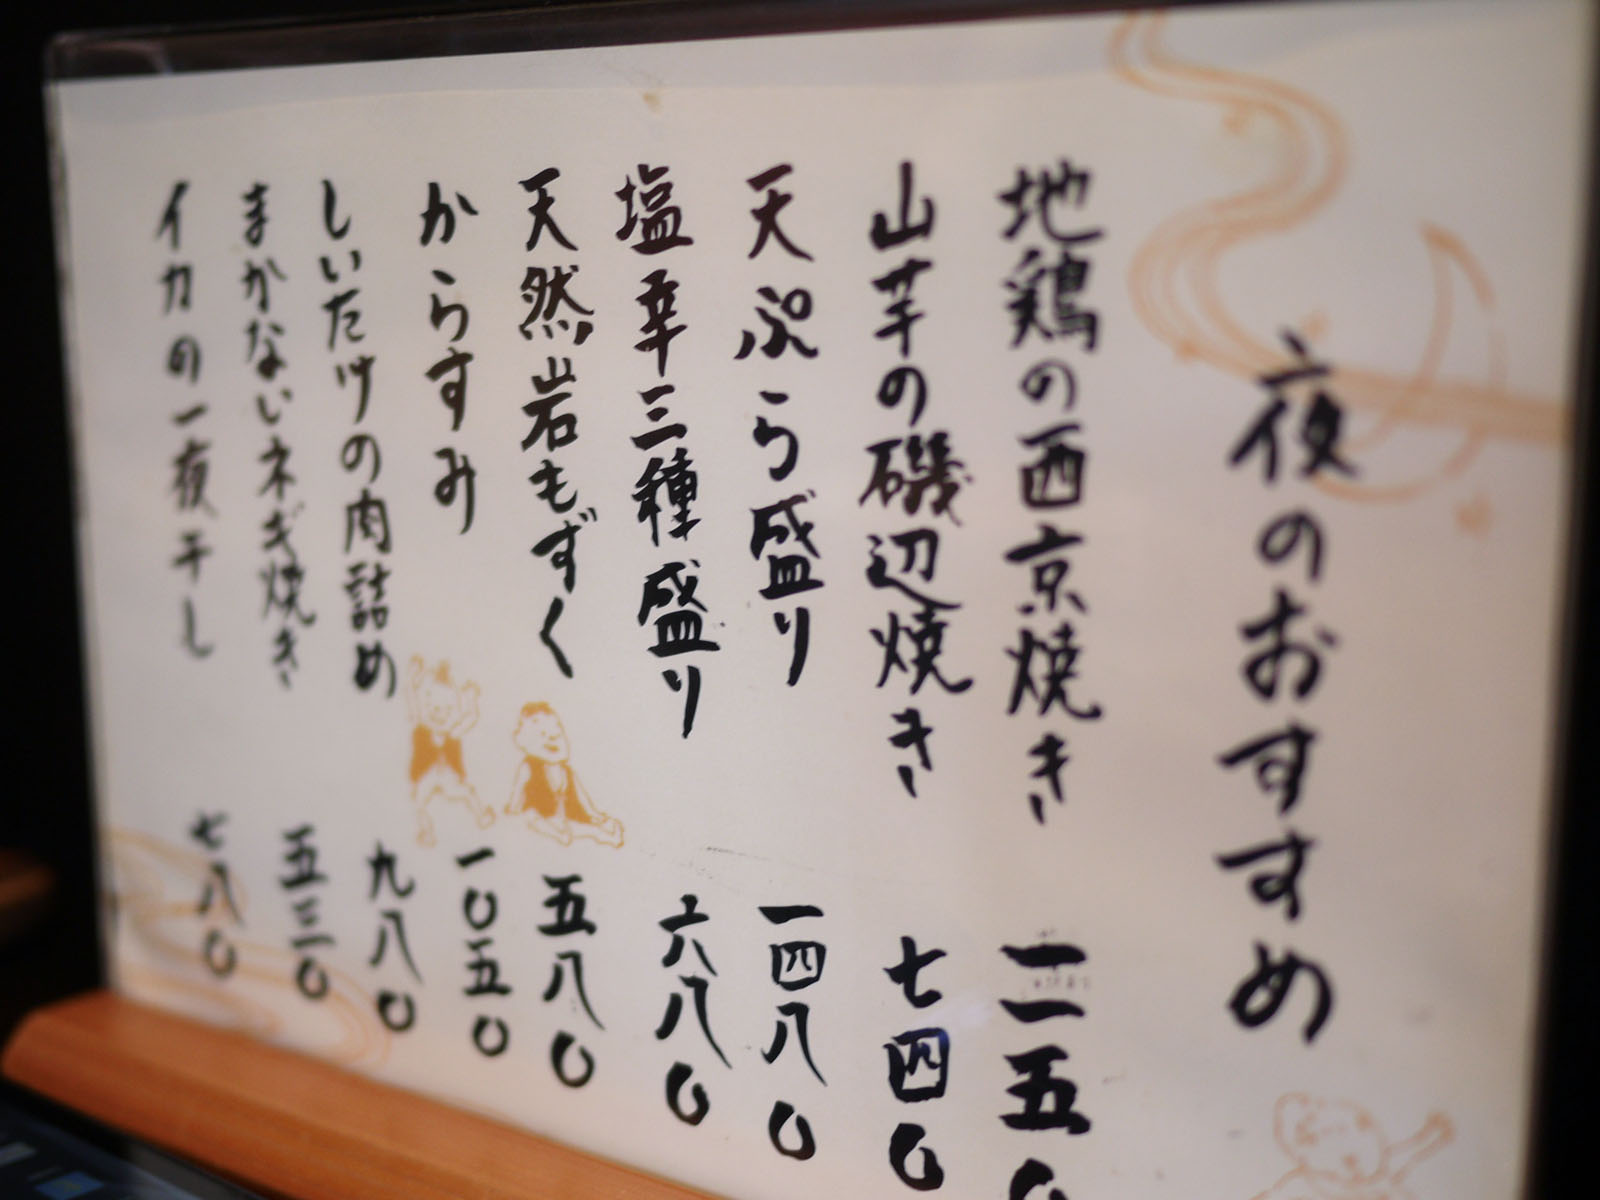 夜のおすすめ
地鶏の西京焼き 一一五〇
山芋の磯辺焼き 七四〇
天ぷら盛り 一四八〇
塩辛三種盛り 六八〇
天然岩もずく 五八〇
からすみ 一〇五〇
しいたけの肉詰め 九八〇
まかないネギ焼き 五三〇
イカの一夜干し 七八〇